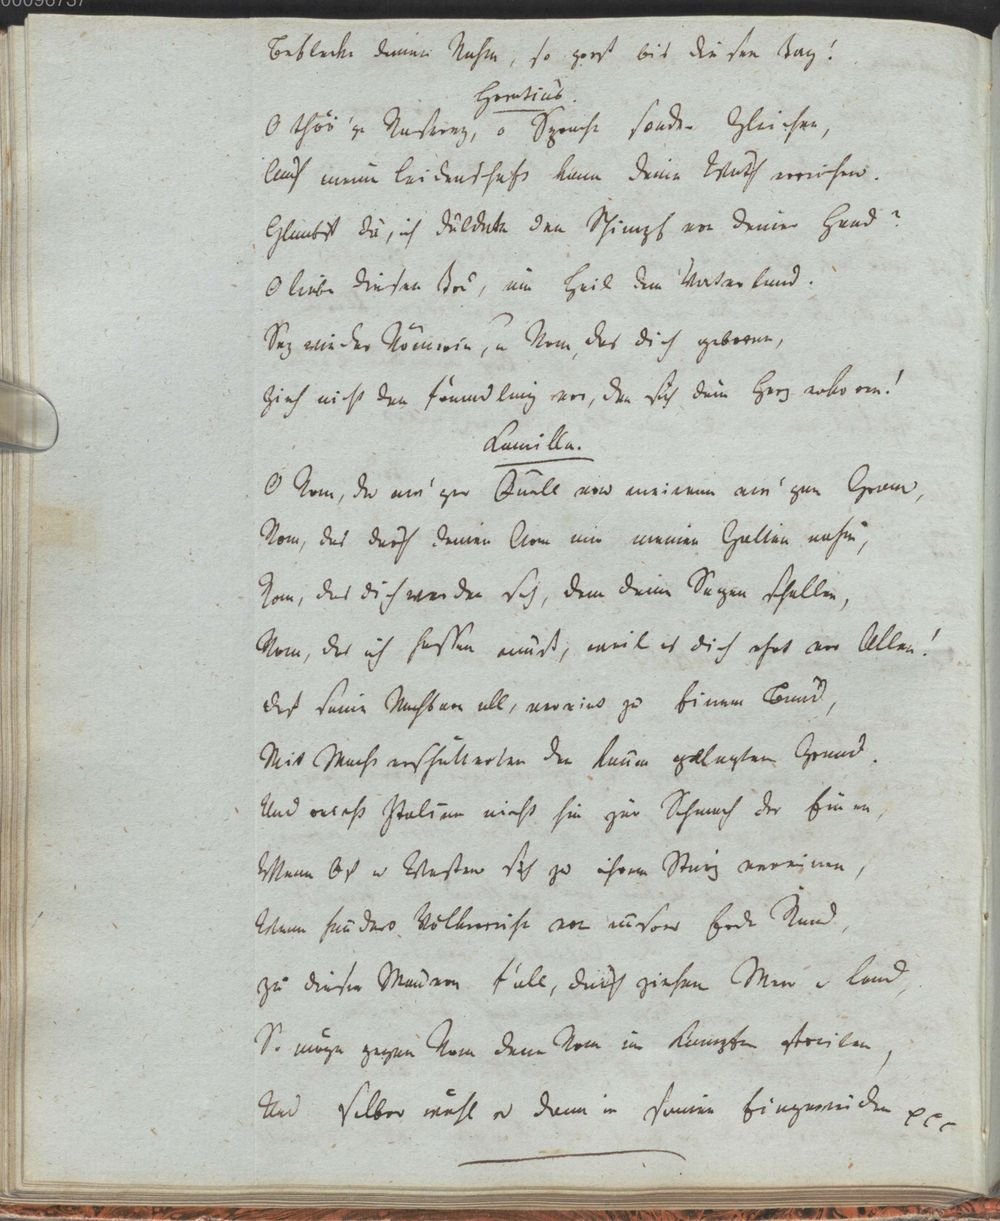 00096737
Befleckte deinen Ruhm, so groß bis diesen Tag!
Horatius.
O thör'ge Raserey, o Sprache sonder Gleichen,
Auch meine Leidenschaft kann deine Wuth erreichen.
Glaubst du, ich duldete den Schimpf von deiner Hand?
O liebe diesen Tod, ein Heil dem Vaterland.
Sey wieder Römerin, u Rom, das dich geboren,
Zieh nicht den Fremdling vor, den sich dein Herz erkoren!
Kamilla.
O Rom, du ew'ger Quell von meinem ew'gen Gram,
Rom, das durch deinen Arm mir meinen Gatten nahm,
Rom, das dich werden sah, dem deine Segen schallen,
Rom, das ich hassen muß, weil es dich ehrt vor Allen!
Daß seine Nachbarn all, vereint zu Einem Bund,
Mit Macht erschütterten den kaum gelegten Grund.
Und reicht Italien nicht hin zur Schmach der Einen,
Mann Ost u Westen sich zu ihrem Sturz vereinen,
Wenn hundert Völker von unsrer Erde Rand,
Zu dieser Mauern Fall, durchziehen Meer u Land,
So möge gegen Rom dann Rom im Kampfe streiten,
Und selber wühl es dann in seinen Eingeweiden